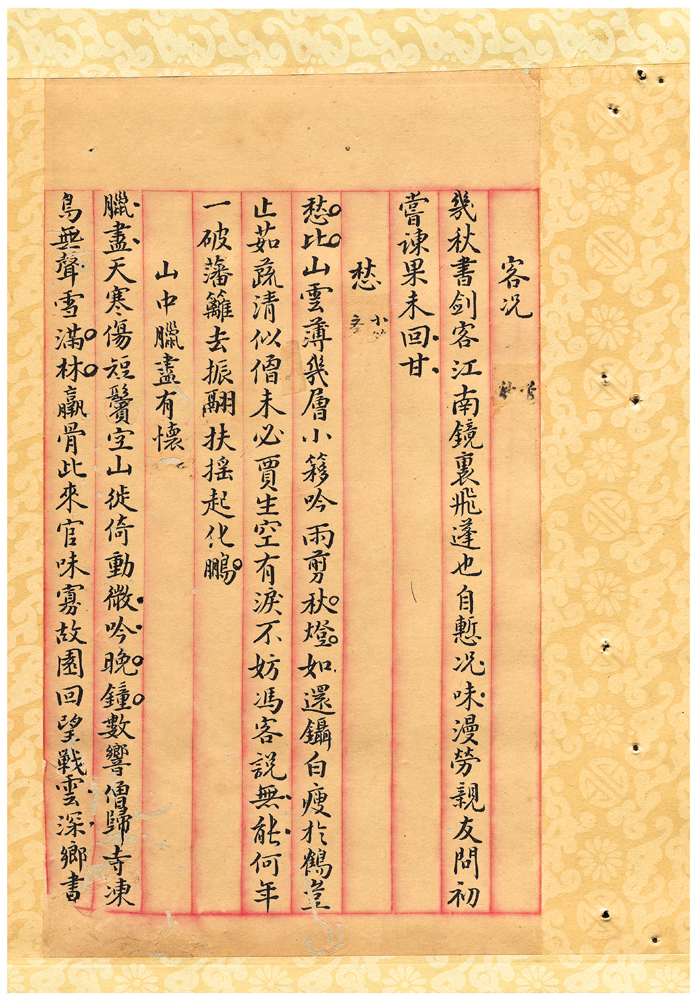 客况
幾秋書劍客江南鏡裏飛蓬也自慙况味漫勞親友問初
嘗諫果未回甘
愁
愁比山雲薄幾層小簃吟雨剪秋燈如還鑷白瘦於鶴豈
止茹蔬清似僧未必賈生空有淚不妨馮客說無能何年
一破藩籬去振翮扶搖起化鵬
山中臘盡有懷
臘盡天寒傷短鬢空山徙倚動微吟晚鐘數響僧歸寺凍
鳥無聲雪滿林羸骨此來官味寡故園回望戰雲深鄉書